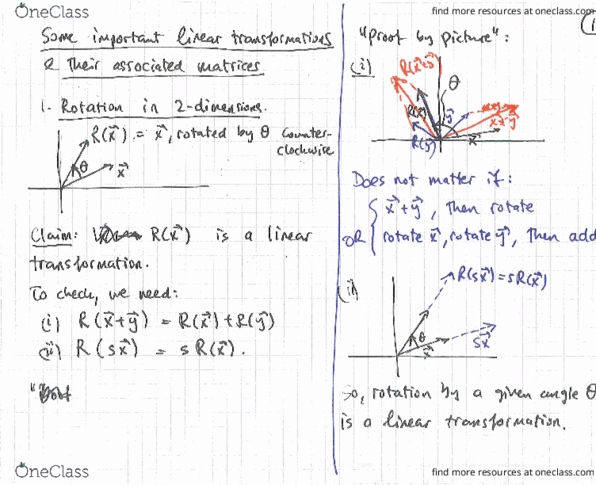 OneClass
find more resources at oneclass.com
Some important linear transformations
& their associated matrices
1. Rotation in 2-dimensions.
R(x⃗) = x⃗, rotated by θ counter-
clockwise
θ
x⃗
Claim: R(x⃗) is a linear
transformation.
To check, we need:
(i) R(x⃗+y⃗) = R(x⃗)+R(y⃗)
(ii) R(sx⃗) = sR(x⃗).
"Proof by picture":
(i)
R(x⃗+y⃗)
θ
R(x⃗)
y⃗
x⃗+y⃗
R(y⃗)
x⃗
Does not matter if:
x⃗+y⃗, then rotate
OR rotate x⃗, rotate y⃗, then add
(ii)
R(sx⃗)=sR(x⃗)
θ
x⃗
sx⃗
So, rotation by a given angle θ
is a linear transformation.
OneClass
find more resources at oneclass.com